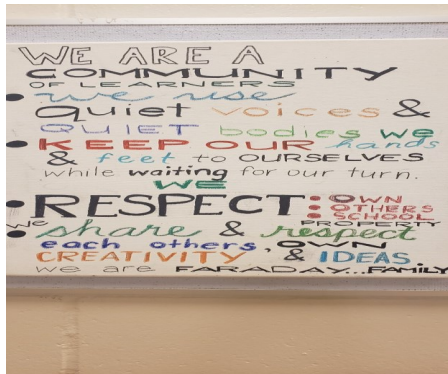 WE ARE A
COMMUNITY
OF LEARNERS
• we use
quiet voices &
QUIET bodies we
• KEEP OUR hands
& feet to OURSELVES
while waiting for our turn.
WE
• RESPECT: • OWN
• OTHERS
• SCHOOL
PROPERTY
We
• share & respect
each others, OWN
CREATIVITY & IDEAS
we are FARADAY... FAMILY